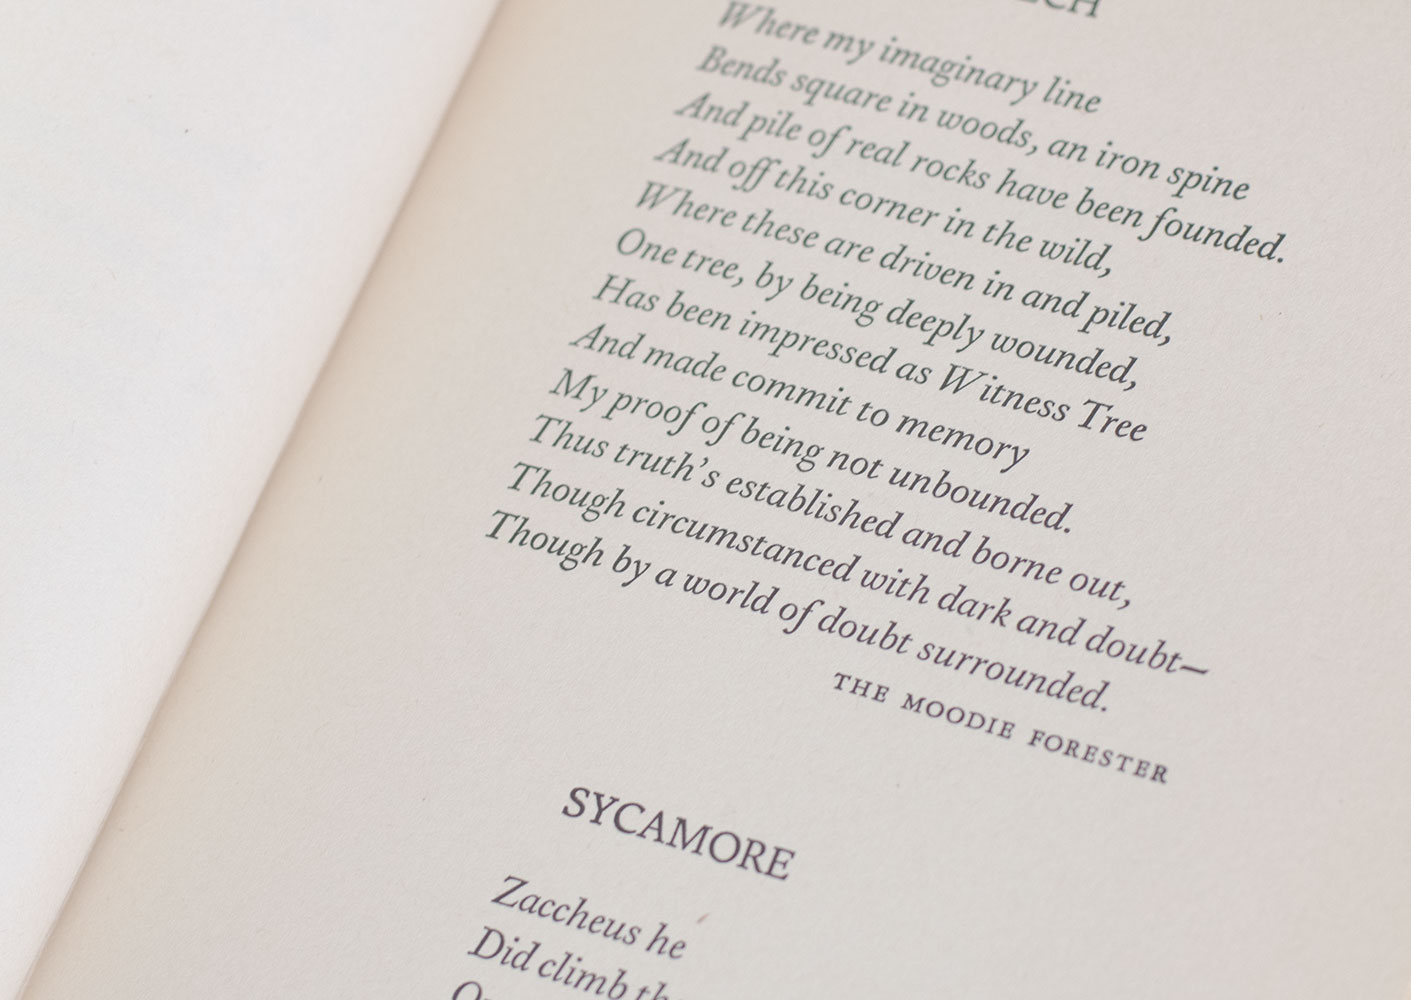 Where my imaginary line
Bends square in woods, an iron spine
And pile of real rocks have been founded.
And off this corner in the wild,
Where these are driven in and piled,
One tree, by being deeply wounded,
Has been impressed as Witness Tree
And made commit to memory
My proof of being not unbounded.
Thus truth’s established and borne out,
Though circumstanced with dark and doubt—
Though by a world of doubt surrounded.
THE MOODIE FORESTER
SYCAMORE
Zaccheus he
Did climb